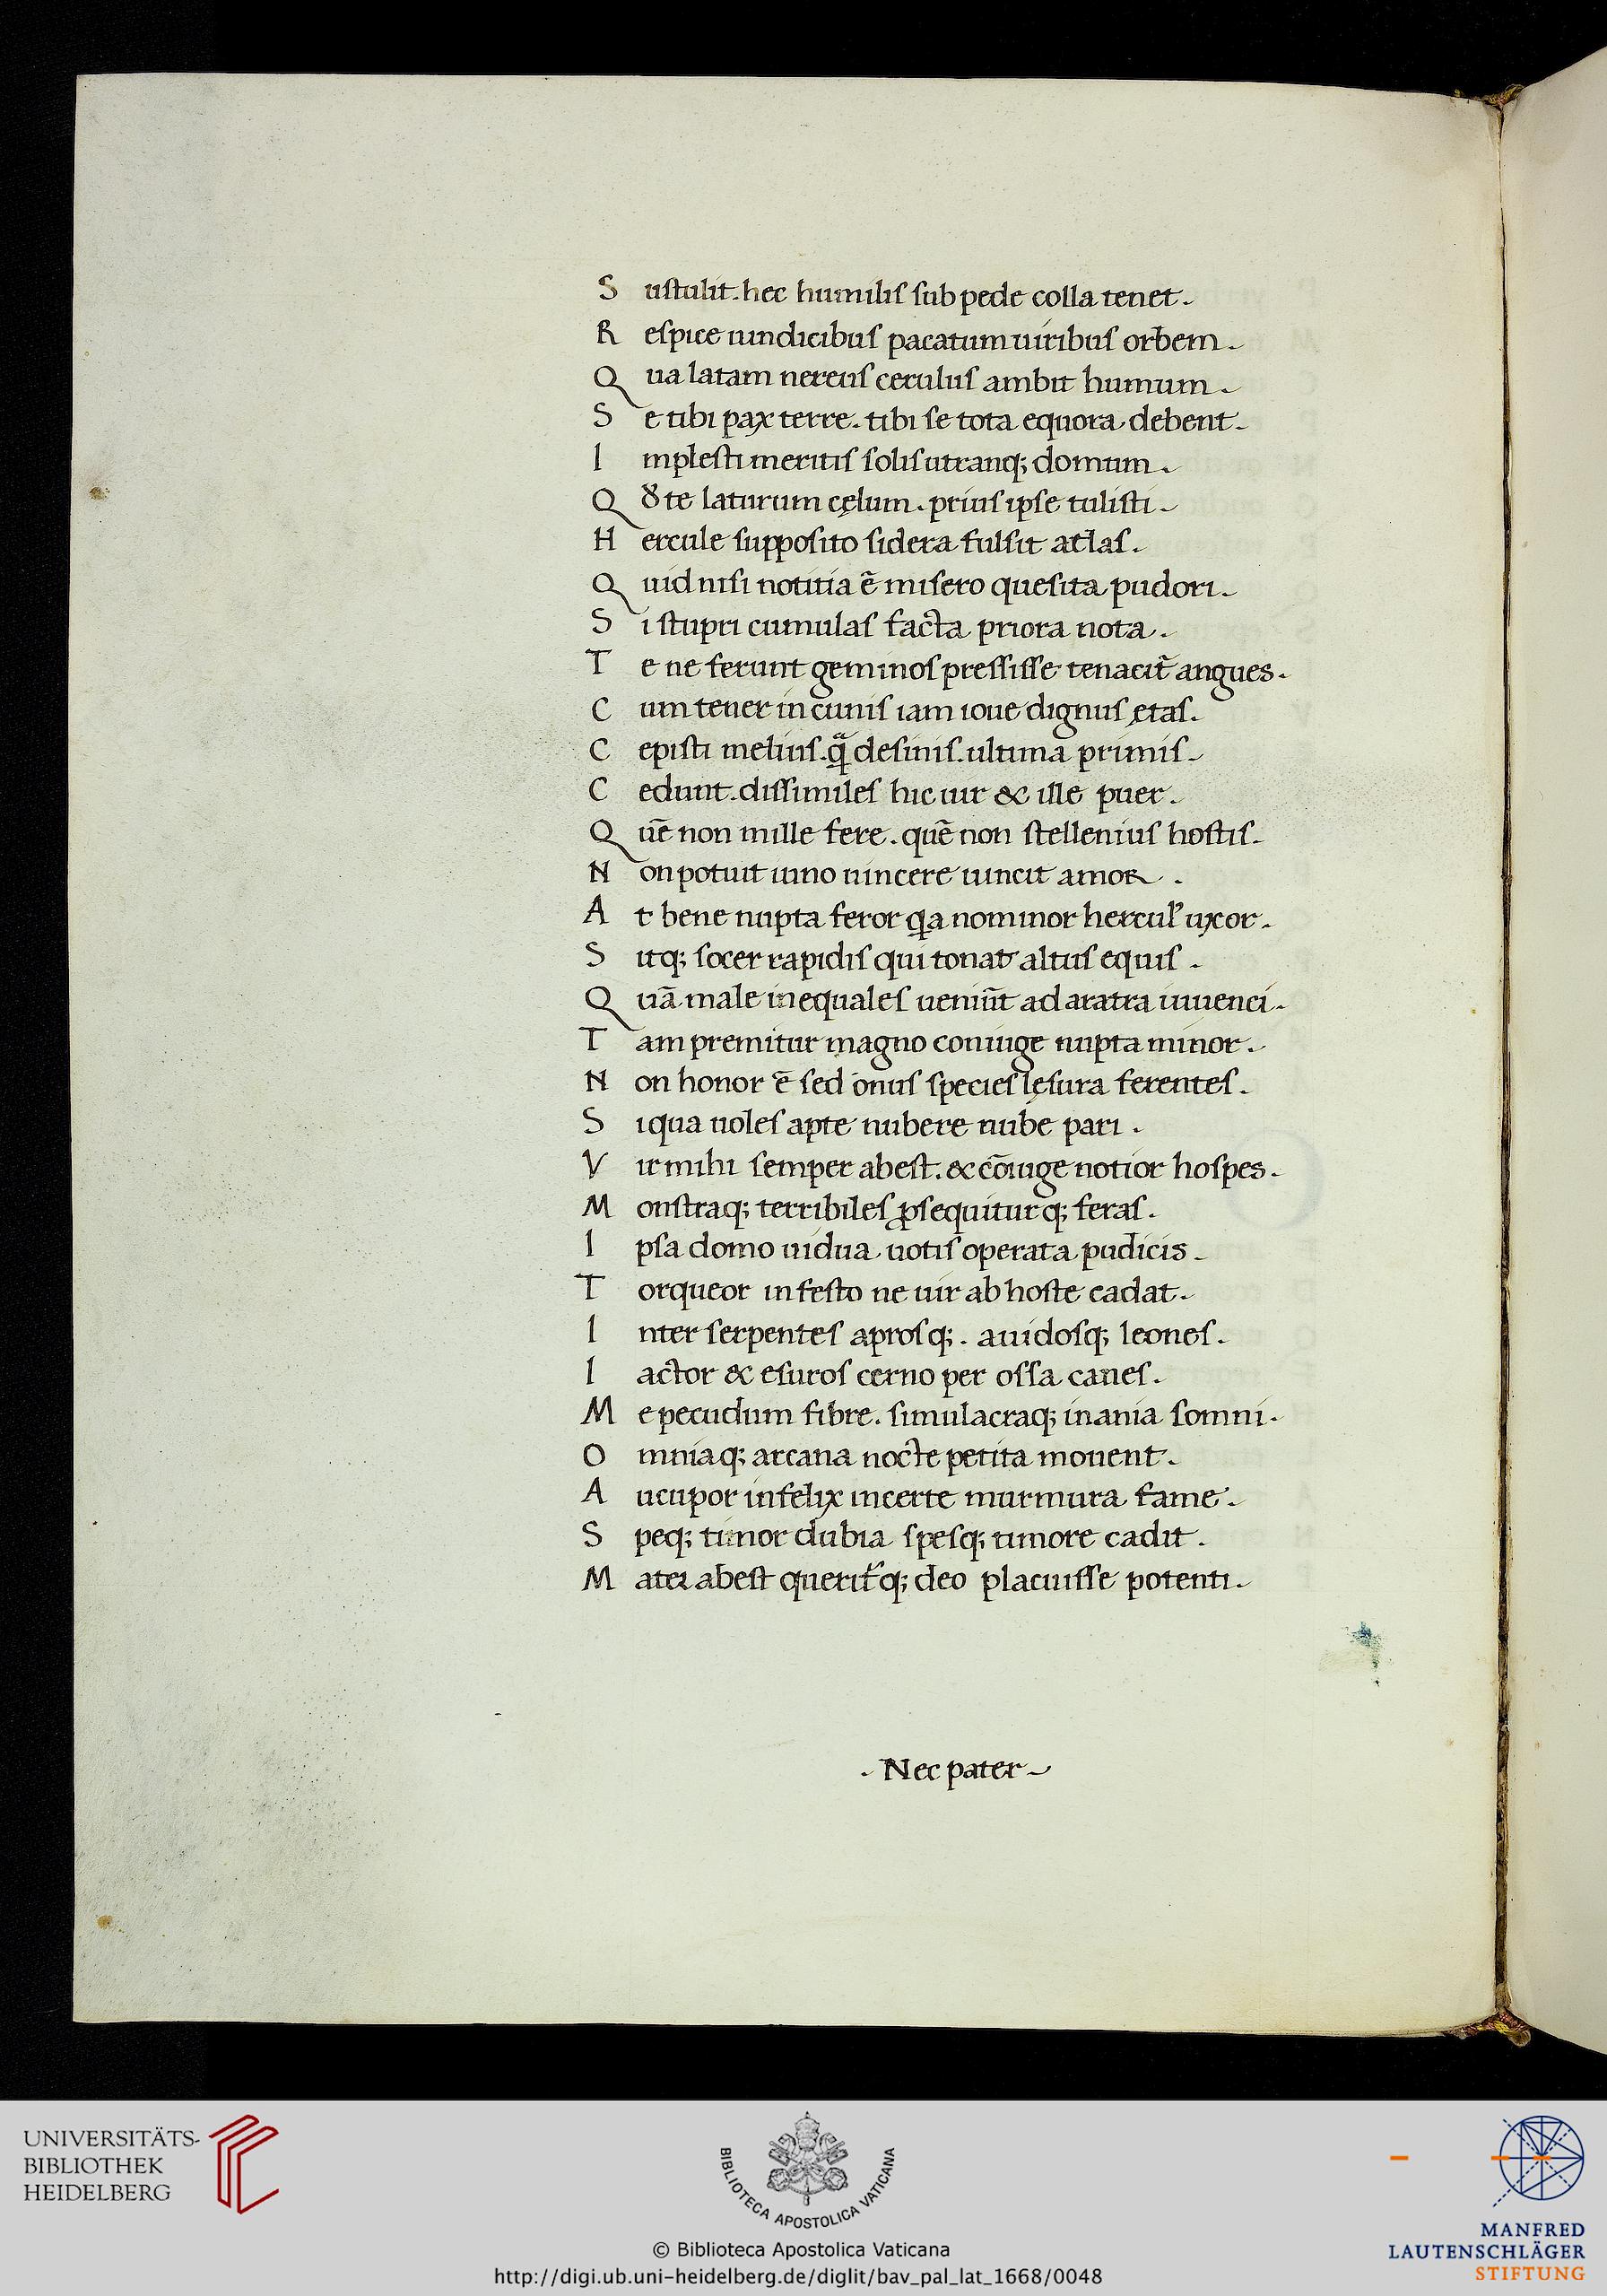 S ustulit. hec humilis sub pede colla tenet.
R espice uindicibus pacatum uiribus orbem.
Q ua latam nereus cerulus ambit humum.
S e tibi pax terre. tibi se tota equora debent.
I mplesti meritis solis utranq; domum.
Q ỽ te laturum cęlum. prius ipse tulisti.
H ercule supposito sidera fulsit atlas.
Q uid nisi notitia ē misero quesita pudori.
S i stupri cumulas facta priora nota.
T e ne ferunt geminos pressisse tenacit̄ angues.
C um tener in cunis iam ioue dignus ętas.
C episti melius. q̄ desinis. ultima primis.
C edunt. dissimiles hic uir & ille puer.
Q uē non mille fere. quē non stellenius hostis.
N on potuit iuno uincere uincit amor.
A t bene nupta feror qa nominor hercul' uxor.
S itq; socer rapidis qui tonat altus equis.
Q uā male inequales ueniūt ad aratra iuuenci.
T am premitur magno coniuge nupta minor.
N on honor ē sed onus species lęsura ferentes.
S iqua uoles apte nubere nube pari.
V ir mihi semper abest. & cōiuge notior hospes.
M onstraq; terribiles ꝓsequiturq; feras.
I psa domo uidua uotis operata pudicis.
T orqueor infesto ne uir ab hoste cadat.
I nter serpentes aprosq;. auidosq; leones.
I actor & esuros cerno per ossa canes.
M e pecudum fibre. simulacraq; inania somni.
O mniaq; arcana nocte petita mouent.
A ucupor infelix incerte murmura fame.
S peq; timor dubia spesq; timore cadit.
M ater abest querit᷑q; deo placuisse potenti.
. Nec pater
UNIVERSITÄTS-
BIBLIOTHEK
HEIDELBERG
BIBLIOTECA APOSTOLICA VATICANA
© Biblioteca Apostolica Vaticana
http://digi.ub.uni-heidelberg.de/diglit/bav_pal_lat_1668/0048
MANFRED
LAUTENSCHLÄGER
STIFTUNG